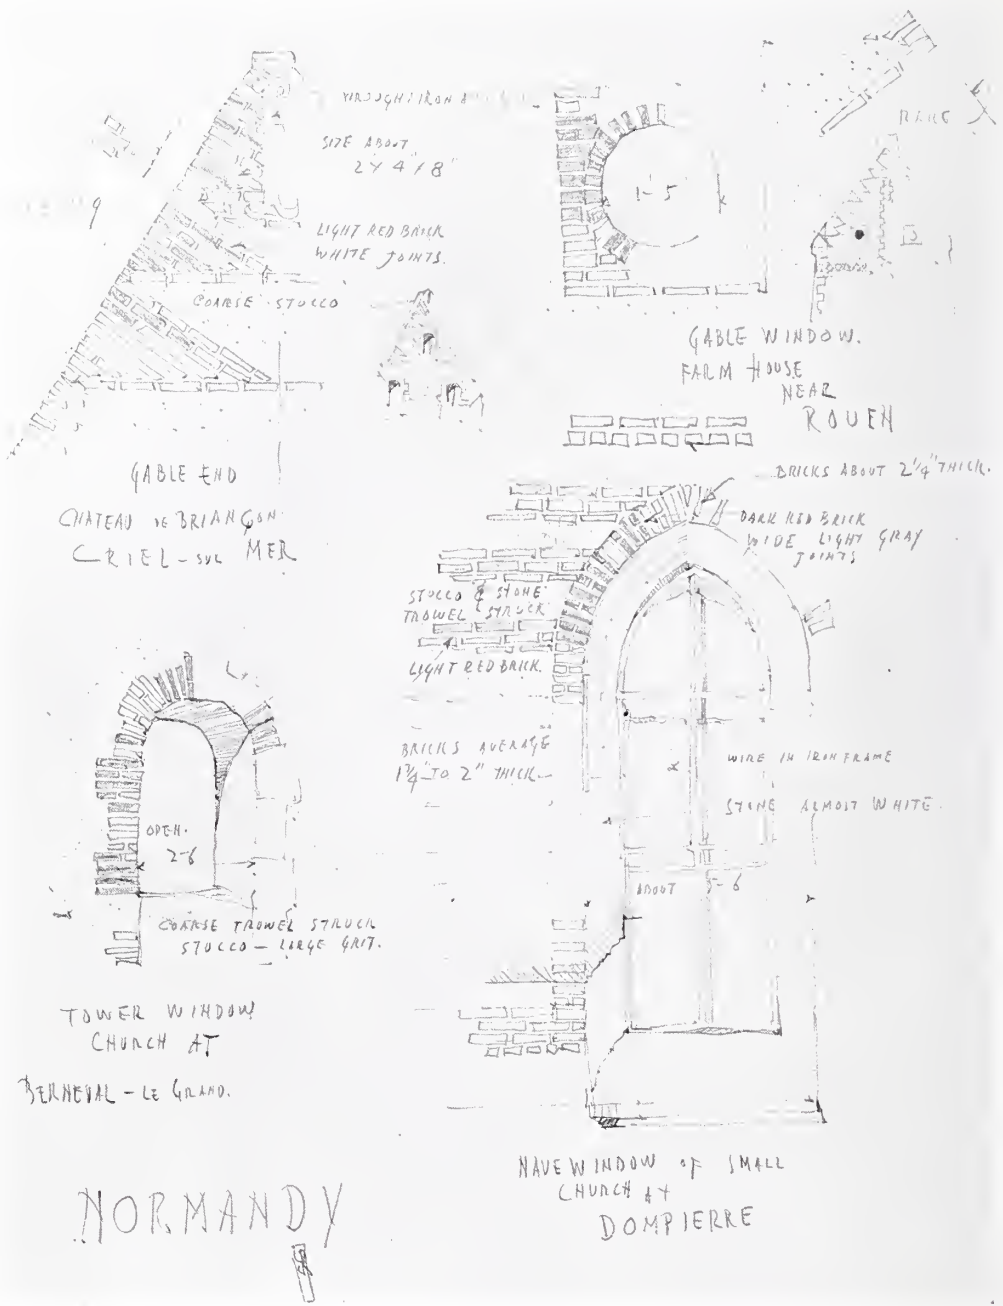 WROUGHT IRON
SIZE ABOUT
2 X 4" X 8"
LIGHT RED BRICK
WHITE JOINTS.
COARSE STUCCO
GABLE END
CHATEAU DE BRIANÇON
CRIEL-SUR MER
1-5
GABLE WINDOW.
FARM HOUSE
NEAR
ROUEN
BRICKS ABOUT 2 1/4" THICK.
DARK RED BRICK
WIDE LIGHT GRAY
JOINTS
STUCCO & STONE
TROWEL STRUCK
LIGHT RED BRICK
BRICKS AVERAGE
1 3/4" TO 2" THICK
WIRE IN IRON FRAME
STONE ALMOST WHITE.
ABOUT 5-6
NAVE WINDOW OF SMALL
CHURCH AT
DOMPIERRE
OPEN.
2-6
COARSE TROWEL STRUCK
STUCCO - LARGE GRIT.
TOWER WINDOW
CHURCH AT
BERNEVAL - LE GRAND.
NORMANDY